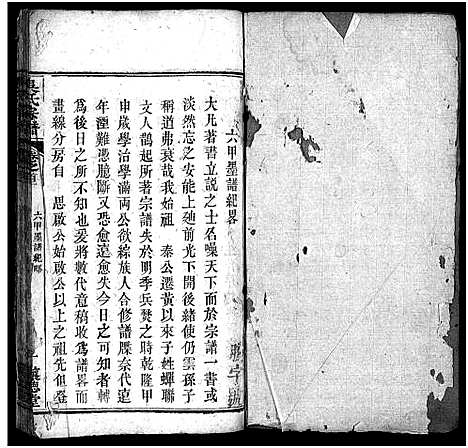 六甲墨譜紀畧
大凡著書立說之士名噪天下而於宗譜一書或
淡然忘之安能上廸前光下開後緒使仍雲孫子
稱道弗衰哉我始祖 秦公遷黃以來子姓蟬聯
文人鵲起所著宗譜失於明季兵燹之時乾隆甲
申歲學治學滿兩公欲綜族人合修譜牒奈代遠
年湮難憑臆斷又恐愈遠愈失今日之可知者轉
為後日之所不知也爰將數代意稿收為譜畧而
畫線分房自 思啟公始啟公以上之祖先但登
氏宗譜
六甲墨譜紀畧
一
德堂
字號